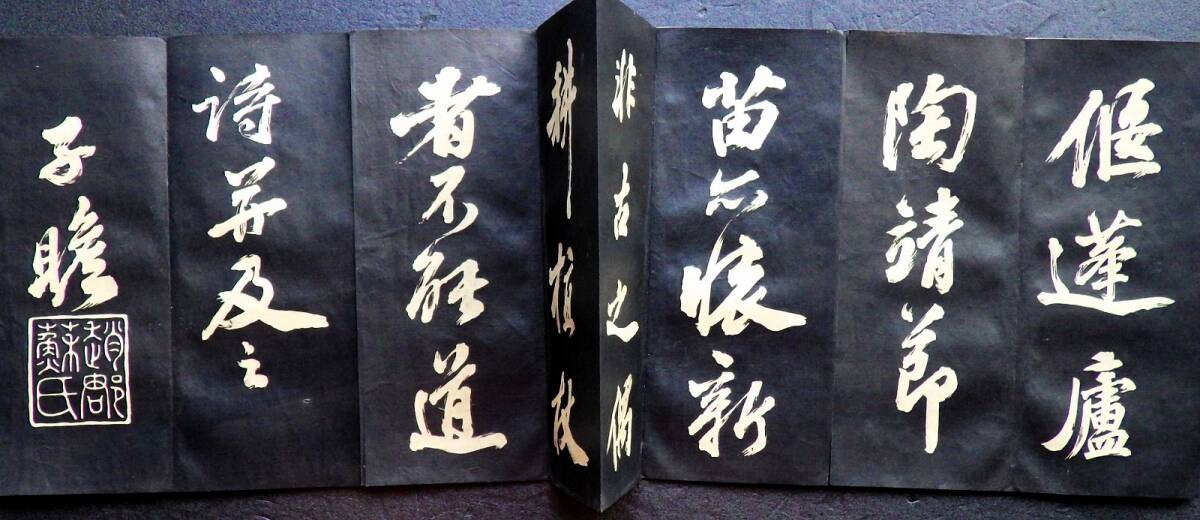 偃蓬廬
陶靖節
苗亦懷新
非古之偶
耕植杖
者不能道
詩并及之
子瞻
趙郡
蘇氏